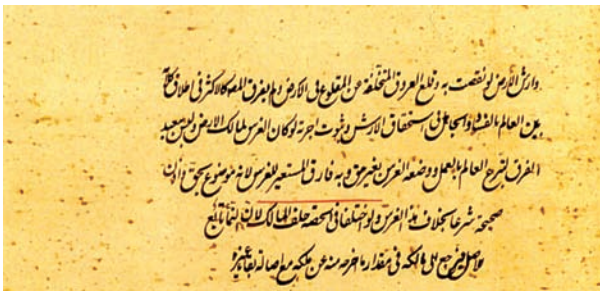 وارش الارض لو نقصت به وقلع العروق المتخلفة عن المقلوع فى الارض ولم يفرق المص كالاكثر فى اطلاق كلامه
بين العالم بالفساد والجاهل فى استحقاق الارش وثبوت اجرته لو كان الغرس لمالك الارض وليس ببعيد
الفرق لتبرع العالم بالعمل ووضعه الغرس بغير حق وبه فارق المستعير للغرس لانه موضوع بحق واذن
صحيحة شرعا بخلاف هذا الغرس ولو اختلفا فى الحصة حلف المالك لان النماء تابع
للاصل فيرجع الى مالكه فى مقدار ما اخرجه منه عن ملكه مع اصالة بقاء غيره